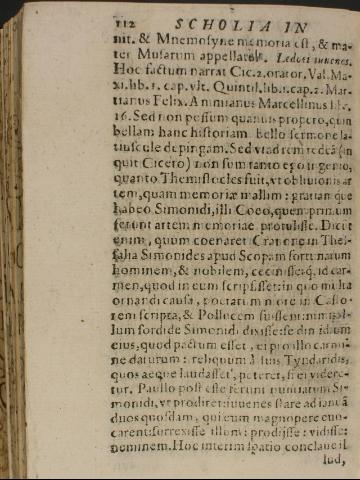 112 SCHOLIA IN
nit. & Mnemosyne memoria est, & ma-
ter Musarum appellatur. Leduti iuuenes.
Hoc factum narrat Cic. 2. orator. Val. Ma-
xi. lib. 1. cap. vlt. Quintil. lib. 11. cap. 2. Mar-
tianus Felix. Ammianus Marcellinus lib.
16. Sed non possum quamuis propero, quin
bellam hanc historiam bello sermone la-
tiuscule depingam. Sed vt ad rem redeā (in
quit Cicero) non sum tanto ego ingenio,
quanto Themistocles fuit, vt obliuionis ar
tem, quam memoriæ mallim: gratian que
habeo Simonidi, illi Coeo, quem primum
ferunt artem memoriae protulisse. Dicūt
enim, quum coenaret Cranone in Thes-
salia Simonides apud Scopam fortunatum
hominem, & nobilem, cecinissetq́; id car-
men, quod in eum scripsisset: in quo multa
ornandi causa, poetarum more in Casto-
rem scripta, & Pollucem fuissent: nimis il-
lum sordide Simonidi dixisse: se dimidium
eius, quod pactum esset, ei pro illo carmi-
ne daturum: reliquum à suis Tyndaridis,
quos aeque laudasset, peteret, si ei videre-
tur. Paullo post esse ferunt nuntiatum Si-
monidi, vt prodiret: iuuenes stare ad ianuā
duos quosdam, qui eum magnopere euo-
carent: surrexisse illum: prodijsse: vidisse:
neminem. Hoc interim spatio conclaue il
lud,